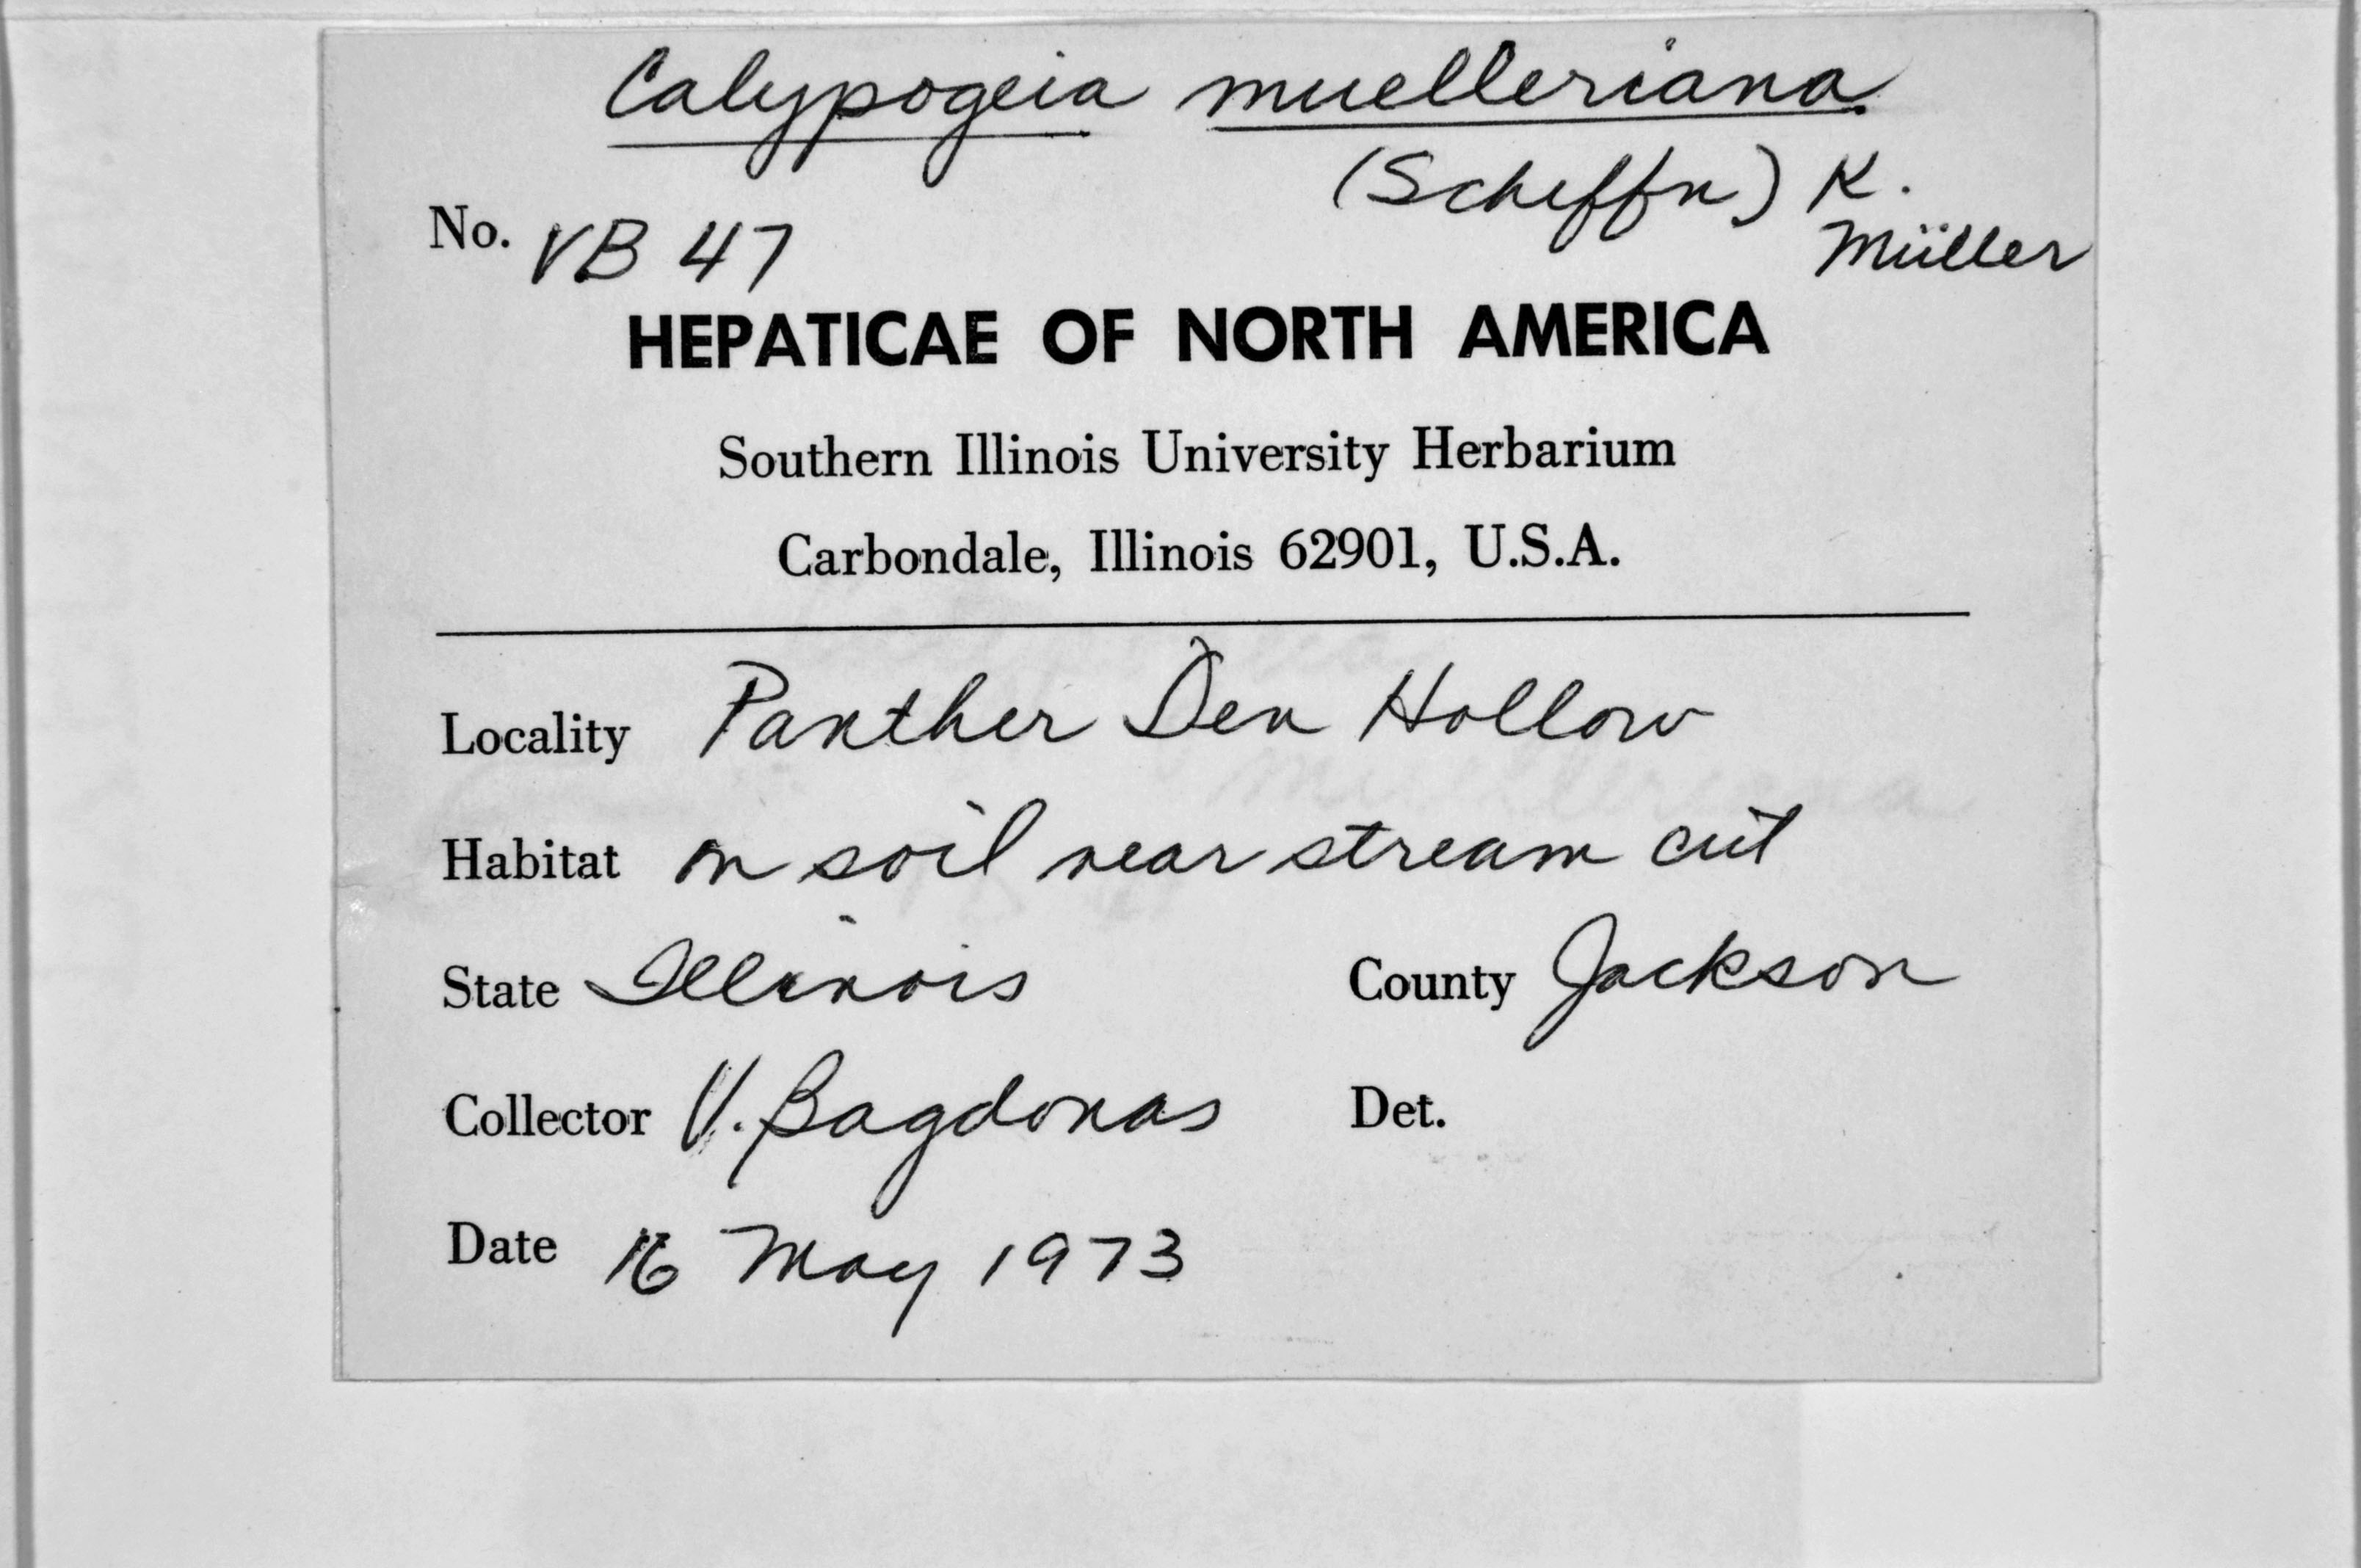 Calypogeia muelleriana
(Scheffn) K.
Müller
No. VB 47
HEPATICAE OF NORTH AMERICA
Southern Illinois University Herbarium
Carbondale, Illinois 62901, U.S.A.
Locality Panther Den Hollow
Habitat on soil near stream cut
State Illinois County Jackson
Collector V. Bagdonas Det.
Date 16 May 1973